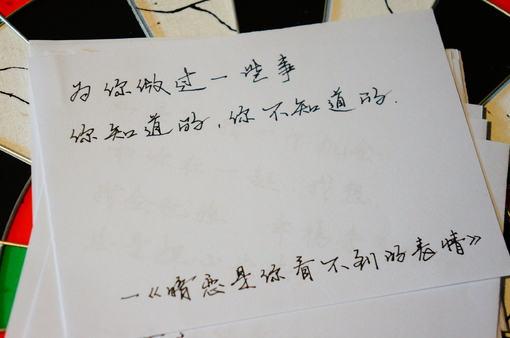 为你做过一些事
你知道的，你不知道的.
—《暗恋是你看不到的表情》